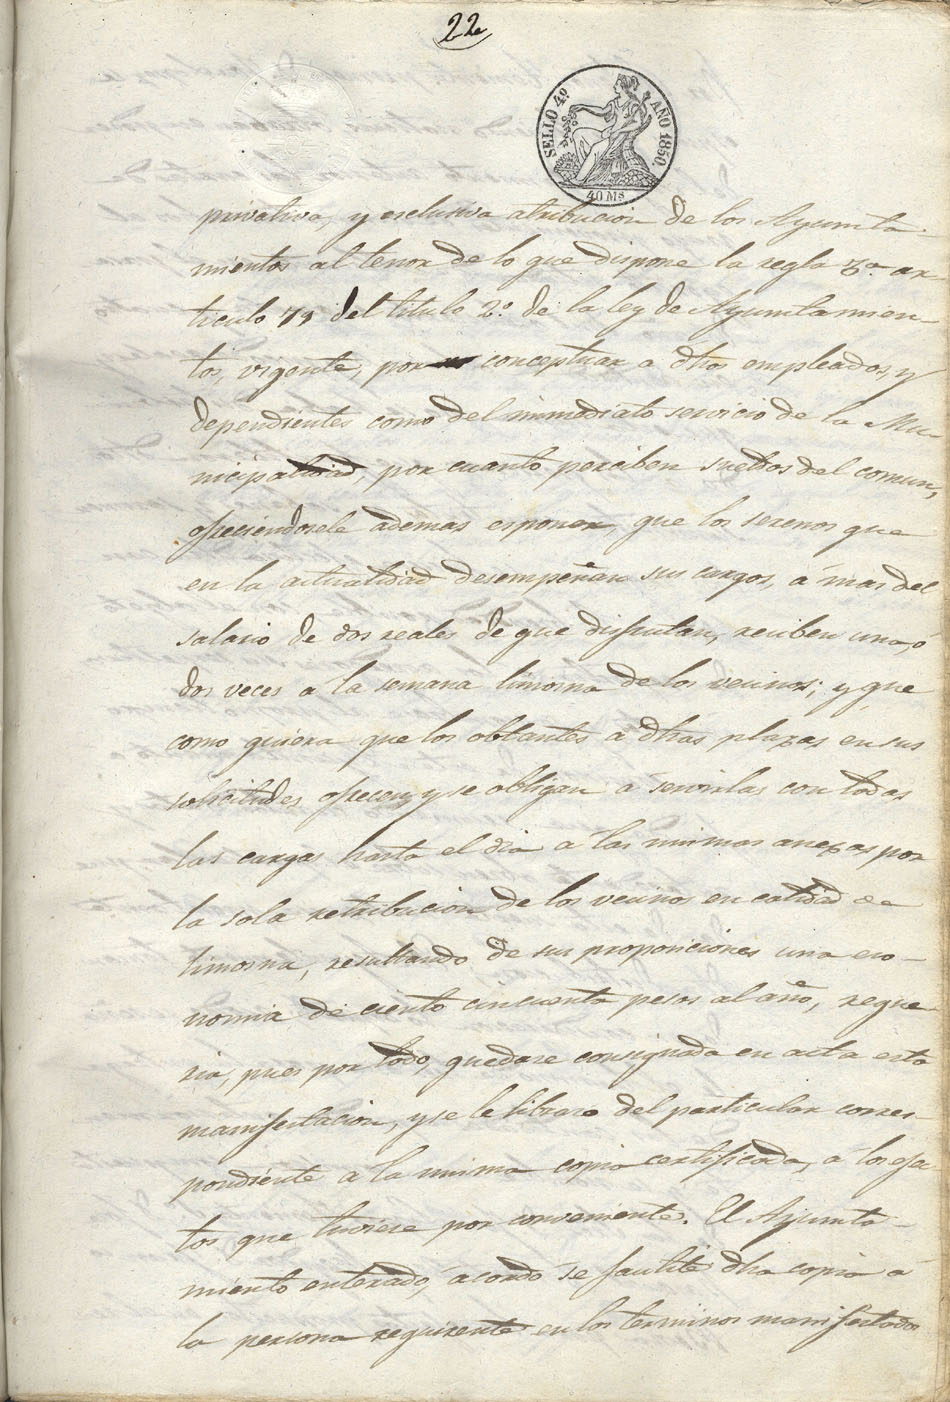 22
SELLO 4º AÑO 1850.
40 Ms
privativa, y esclusiva atribucion de los Ayunta-
mientos al tenor de lo que dispone la regla 3.ª ar-
ticulo 79 del titulo 2.º de la ley de Ayuntamien-
tos, vigente, por conceptuar a dhos empleados, y
dependientes como del inmediato servicio de la Mu-
nicipalidad, por cuanto perciben sueldos del comun,
ofreciendosele ademas esponer, que los serenos que
en la actualidad desempeñan sus cargos, a mas del
salario de dos reales de que disfrutan, reciben una, ó
dos veces a la semana limosna de los vecinos; y que
como quiera que los obtantes a dhas plazas en sus
solicitudes ofrecen, y se obligan a servirlas con todas
las cargas hasta el dia a las mismas anexas por
la sola retribucion de los vecinos en calidad de
limosna, resultando de sus proporciones una eco-
nomia de ciento cincuenta pesos al año, reque-
ria, pues por todo, quedase consignada en acta esta
manifestacion, y se le librase del particular corres-
pondiente a la misma copia certificada, a los efec-
tos que tuviese por conveniente. El Ayunta-
miento enterado, acordó se facilite dha copia a
la persona requirente en los terminos manifestados